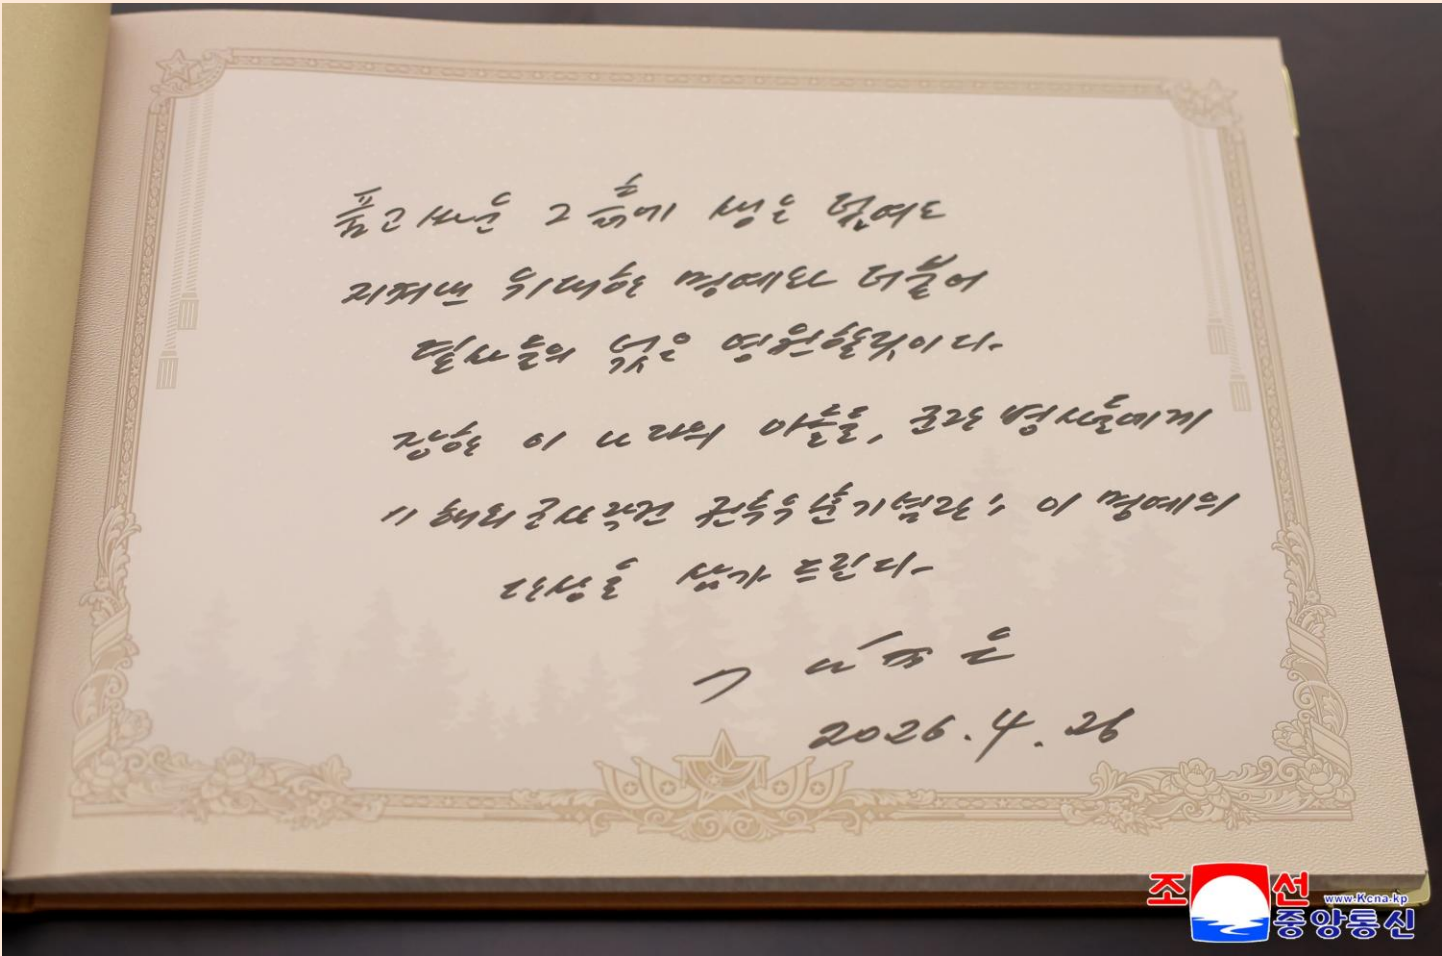 품고 사는 그 흙에 생은 덮여도
지켜낸 위대한 명예와 더불어
렬사들의 넋은 영원할것이다.
장한 이 나라의 아들들, 군관 병사들에게
"해외군사작전 전투위훈기념관", 이 명예의
단상을 삼가 드린다.
김정은
2026.4.26
조선
www.kcna.kp
중앙통신